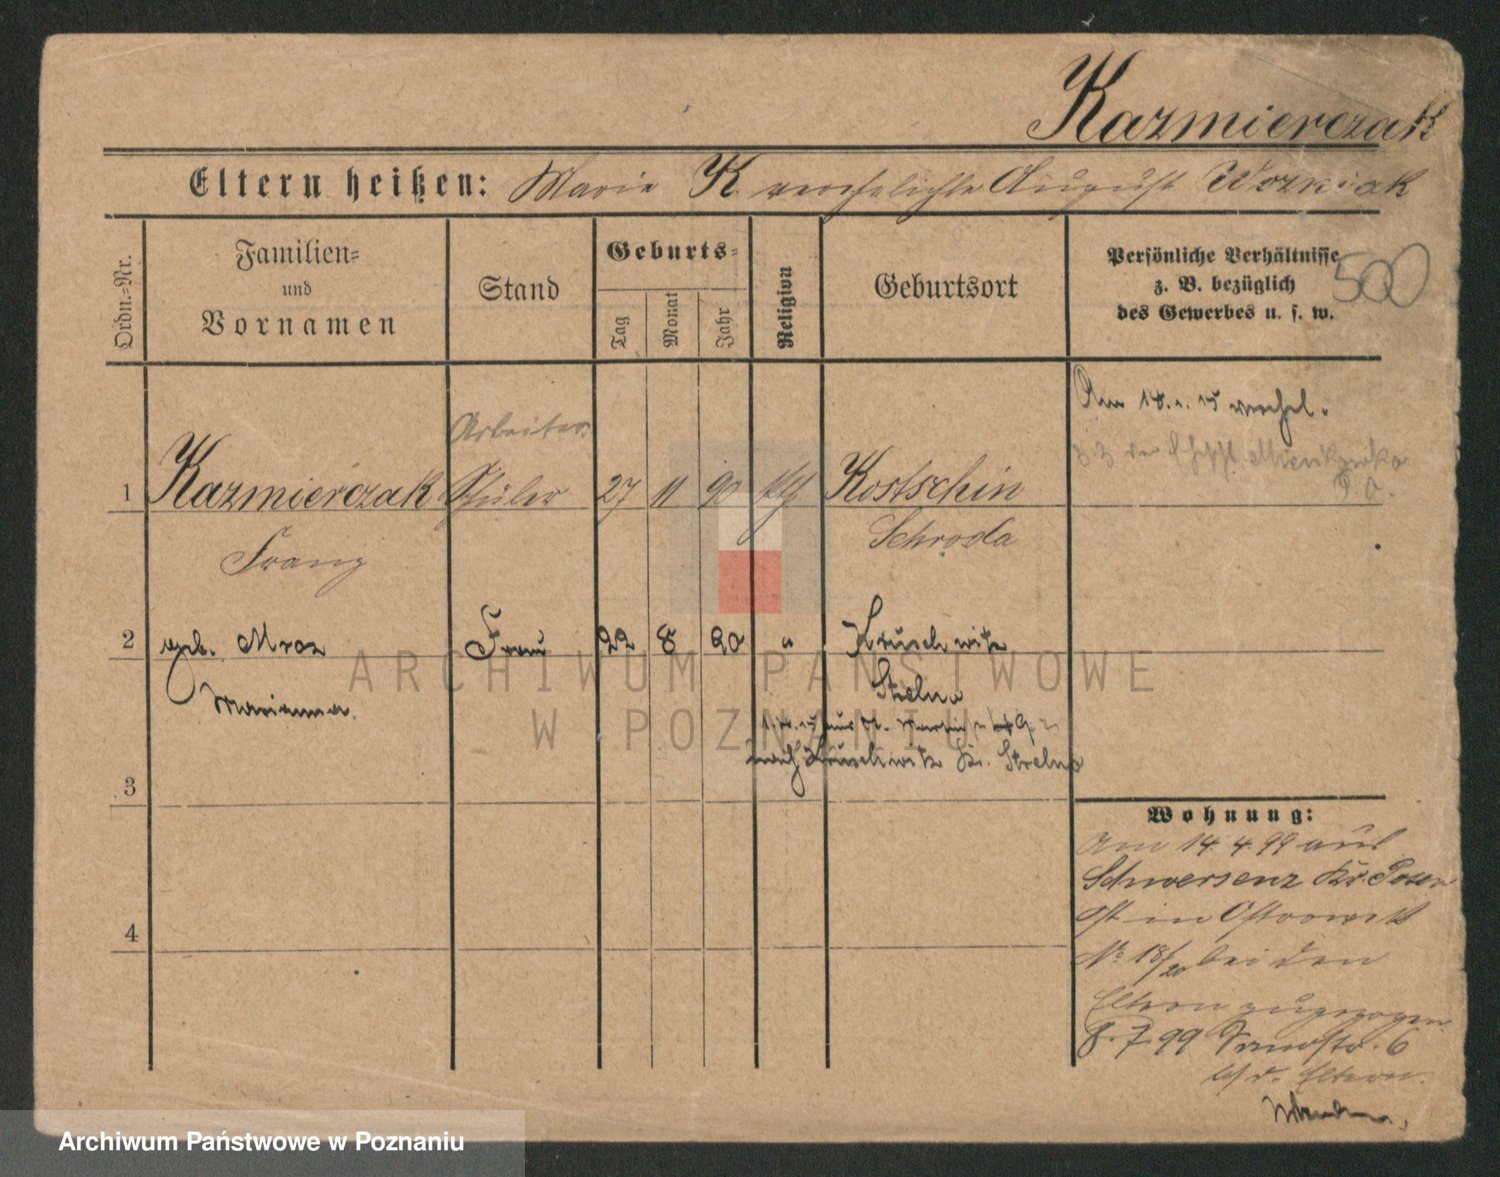 Kazmierczak
Eltern heißen: Marie K. verehelichte August Wozniak
Ordn.-Nr.
Familien-
und
Vornamen
Stand
Geburts-
Tag
Monat
Jahr
Religion
Geburtsort
Persönliche Verhältnisse
z. B. bezüglich
des Gewerbes u. s. w.
500
Am 18. 1. 15 verehel.
Arbeiter
1 Kazmierczak Schüler 27 11 90 kth Kostschin
Franz Schroda
2 geb. Mroz Frau 22 8 90 " Kruschwitz
Marianna Strelno
nach Kruschwitz Kr. Strelno
3
4
Wohnung:
Am 14. 4. 99 aus
Schwersenz Kr. Posen
Ost in Ostrowek
No 18/20 bei den
Eltern zugezogen
8. 7. 99 Sandstr. 6
b/ d. Eltern.
ARCHIWUM PAŃSTWOWE
W POZNANIU
Archiwum Państwowe w Poznaniu